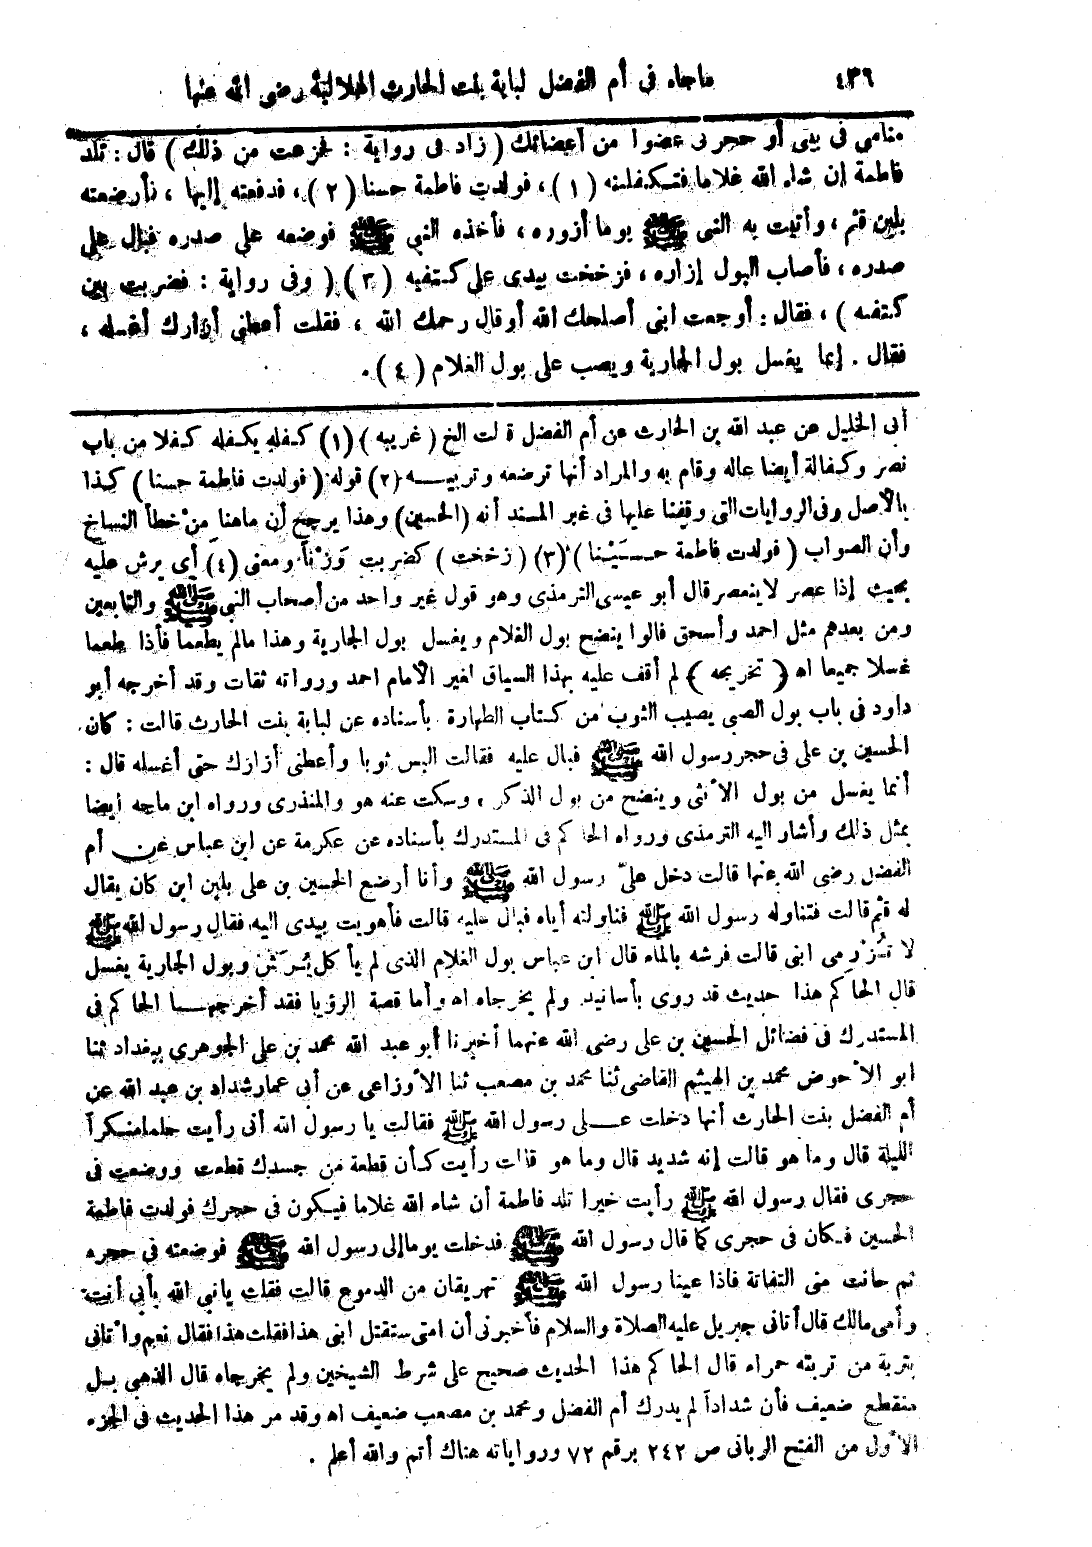 ٤٣٦ ماجاء فى أم الفضل لبابة بنت الحارث الهلالية رضى الله عنها
منامى فى بيتى أو حجرتى عضوا من أعضائك ( زاد فى رواية : فجزعت من ذلك ) قال : تلد
فاطمة إن شاء الله غلاما فتكفلينه (١) ، فولدت فاطمة حسنا (٢) ، فدفعته إليها ، فأرضعته
بلبن قثم ، وأتيت به النبى ﷺ يوما أزوره ، فأخذه النبي ﷺ فوضعه على صدره فبال على
صدره ، فأصاب البول إزاره ، فزخخت بيدى على كتفيه (٣) ( وفى رواية : فضربت بين
كتفيه ) ، فقال : أوجعت ابنى أصلحك الله أوقال رحمك الله ، فقلت أعطنى أزارك أغسله ،
فقال . إنما يغسل بول الجارية ويصب على بول الغلام (٤) .
أبى الخليل عن عبد الله بن الحارث عن أم الفضل قالت الخ (غريبه) (١) كفله يكفله كفلا من باب
نصر وكفالة أيضا عاله وقام به والمراد أنها ترضعه وتربيه (٢) قوله (فولدت فاطمة حسنا) كذا
بالأصل وفى الروايات التى وقفنا عليها فى غير المسند أنه (الحسين) وهذا يرجح أن ماهنا من خطأ النساخ
وأن الصواب (فولدت فاطمة حسَيْنا) (٣) (زخخت) كضربت وَزْناً ومعنى (٤) أى يرش عليه
بحيث إذا عصر لا ينعصر قال أبو عيسى الترمذى وهو قول غير واحد من أصحاب النبى ﷺ والتابعين
ومن بعدهم مثل احمد وأسحق قالوا ينضح بول الغلام ويغسل بول الجارية وهذا مالم يطعما فأذا طعما
غسلا جميعا اه (تخريجه) لم أقف عليه بهذا السياق لغير الأمام احمد ورواته ثقات وقد أخرجه أبو
داود فى باب بول الصبى يصيب الثوب من كتاب الطهارة بأسناده عن لبابة بنت الحارث قالت : كان
الحسين بن على فى حجر رسول الله ﷺ فبال عليه فقالت البس ثوبا وأعطنى أزارك حتى أغسله قال :
أنما يغسل من بول الأنثى وينضح من بول الذكر ، وسكت عنه هو والمنذرى ورواه ابن ماجه أيضا
بمثل ذلك وأشار اليه الترمذى ورواه الحاكم فى المستدرك بأسناده عن عكرمة عن ابن عباس عن أم
الفضل رضى الله عنها قالت دخل علىّ رسول الله ﷺ وأنا أرضع الحسين بن على بلبن ابن كان يقال
له قثم قالت فتناوله رسول الله ﷺ فناولته أياه فبال عليه قالت فأهويت بيدى اليه فقال رسول الله ﷺ
لا تُزْرِمى ابنى قالت فرشه بالماء قال ابن عباس بول الغلام الذى لم يأكل يُرَش وبول الجارية يغسل
قال الحاكم هذا حديث قد روى بأسانيد ولم يخرجاه اه وأما قصة الرؤيا فقد أخرجها الحاكم فى
المستدرك فى فضائل الحسين بن على رضى الله عنهما أخبرنا أبو عبد الله محمد بن على الجوهرى ببغداد ثنا
ابو الأحوض محمد بن الهيثم القاضى ثنا محمد بن مصعب ثنا الأوزاعى عن أبى عمار شداد بن عبد الله عن
أم الفضل بنت الحارث أنها دخلت على رسول الله ﷺ فقالت يا رسول الله أنى رأيت حلما منكراً
الليلة قال وما هو قالت إنه شديد قال وما هو قالت رأيت كأن قطعة من جسدك قطعت ووضعت فى
حجرى فقال رسول الله ﷺ رأيت خيرا تلد فاطمة أن شاء الله غلاما فيكون فى حجرك فولدت فاطمة
الحسين فكان فى حجرى كما قال رسول الله ﷺ فدخلت يوما إلى رسول الله ﷺ فوضعته فى حجره
ثم حانت منى التفاتة فاذا عينا رسول الله ﷺ تهريقان من الدموع قالت فقلت يانبى الله بأبى أنت
وأمى مالك قال أتانى جبريل عليه الصلاة والسلام فأخبرنى أن امتى ستقتل ابنى هذا فقلت هذا فقال نعم وأتانى
بتربة من تربته حمراء قال الحاكم هذا الحديث صحيح على شرط الشيخين ولم يخرجاه قال الذهبى بل
منقطع ضعيف فأن شداداً لم يدرك أم الفضل ومحمد بن مصعب ضعيف اه وقد مر هذا الحديث فى الجزء
الأول من الفتح الربانى ص ٢٤٢ برقم ٧٢ ورواياته هناك أتم والله أعلم .